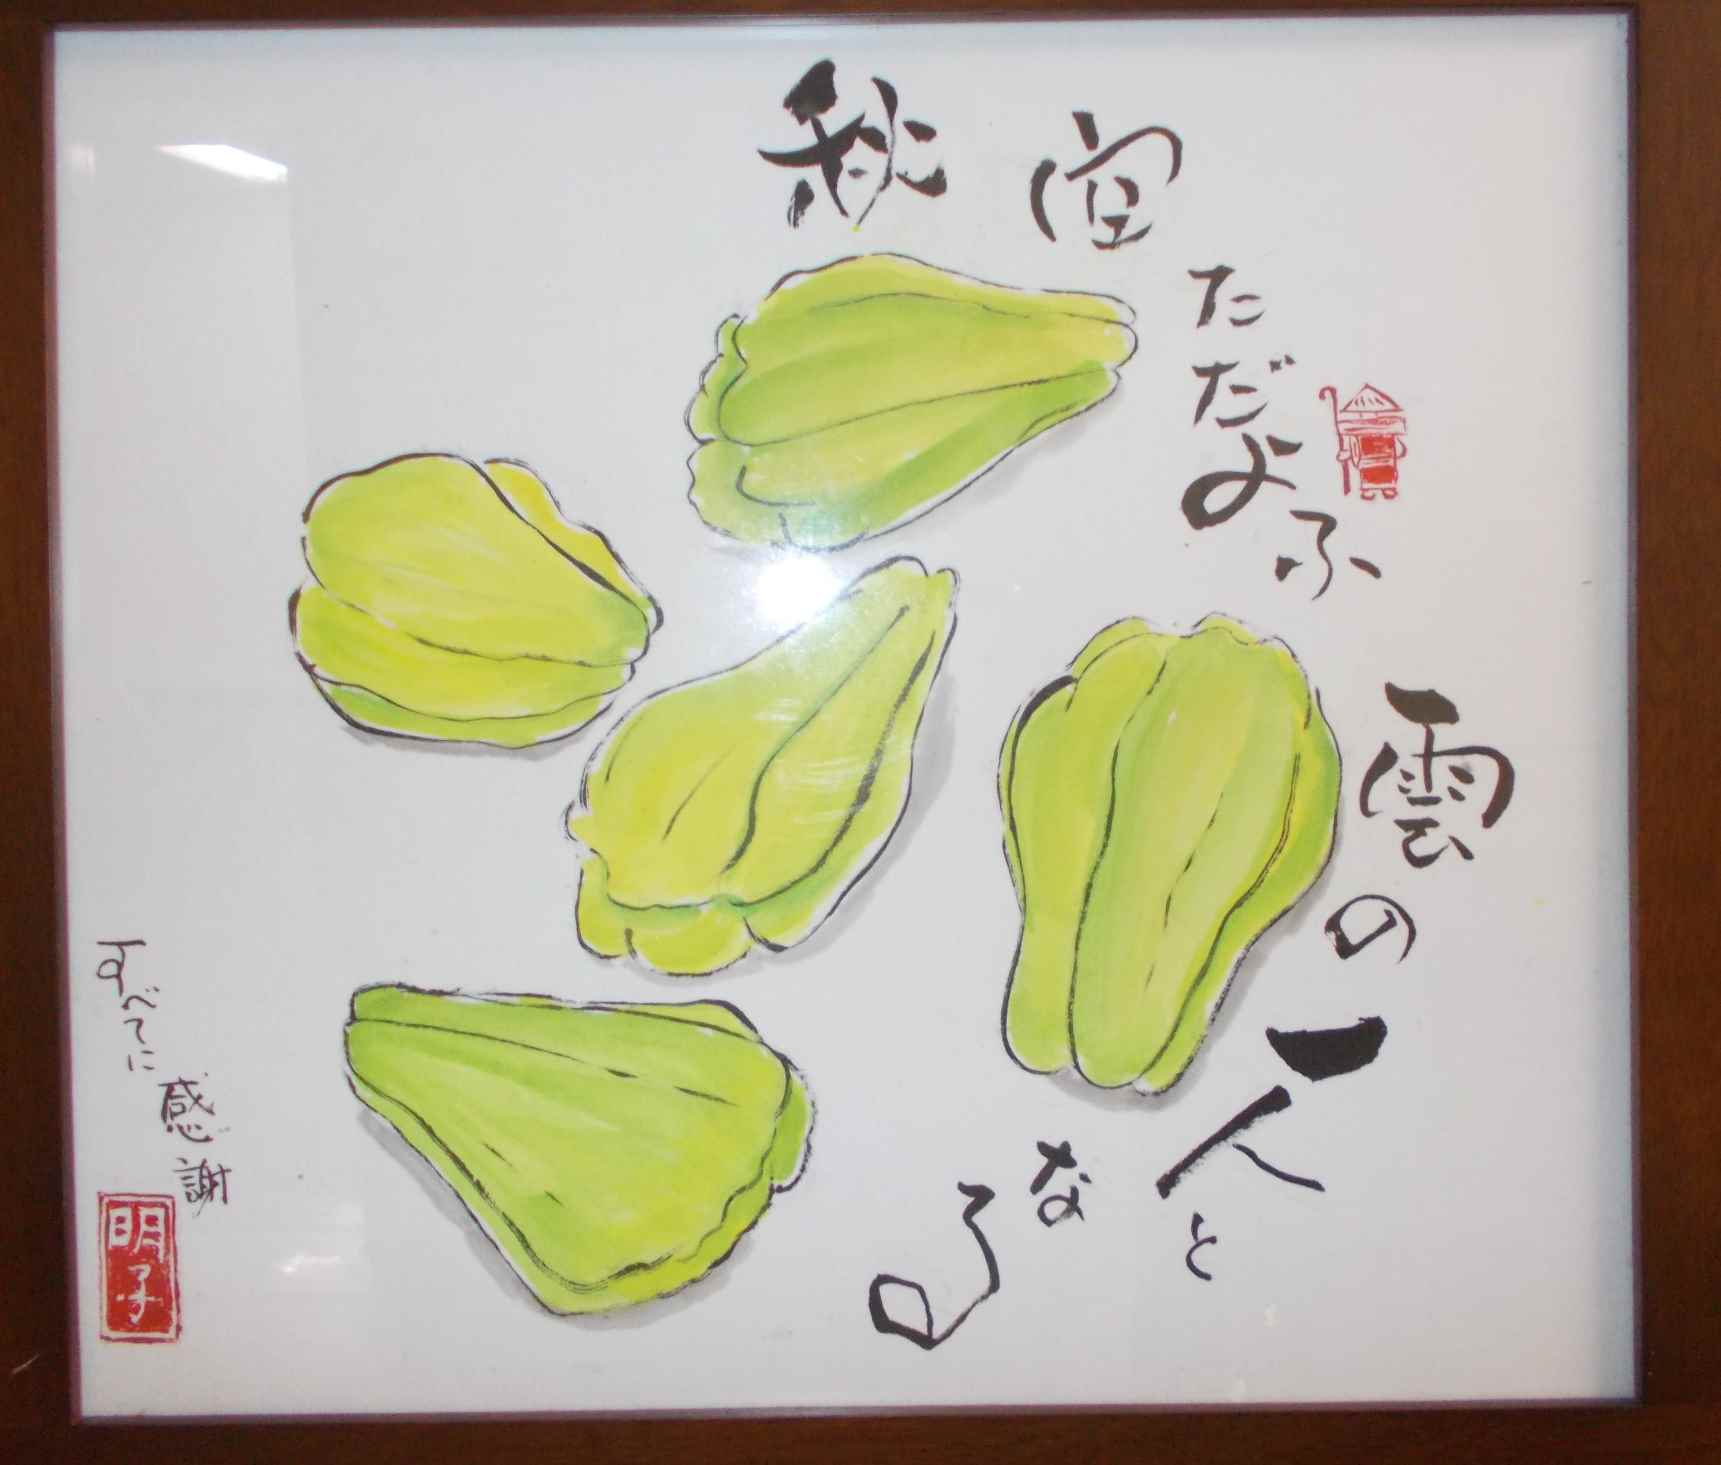 秋空ただよふ雲の一人となる
すべてに感謝
明子